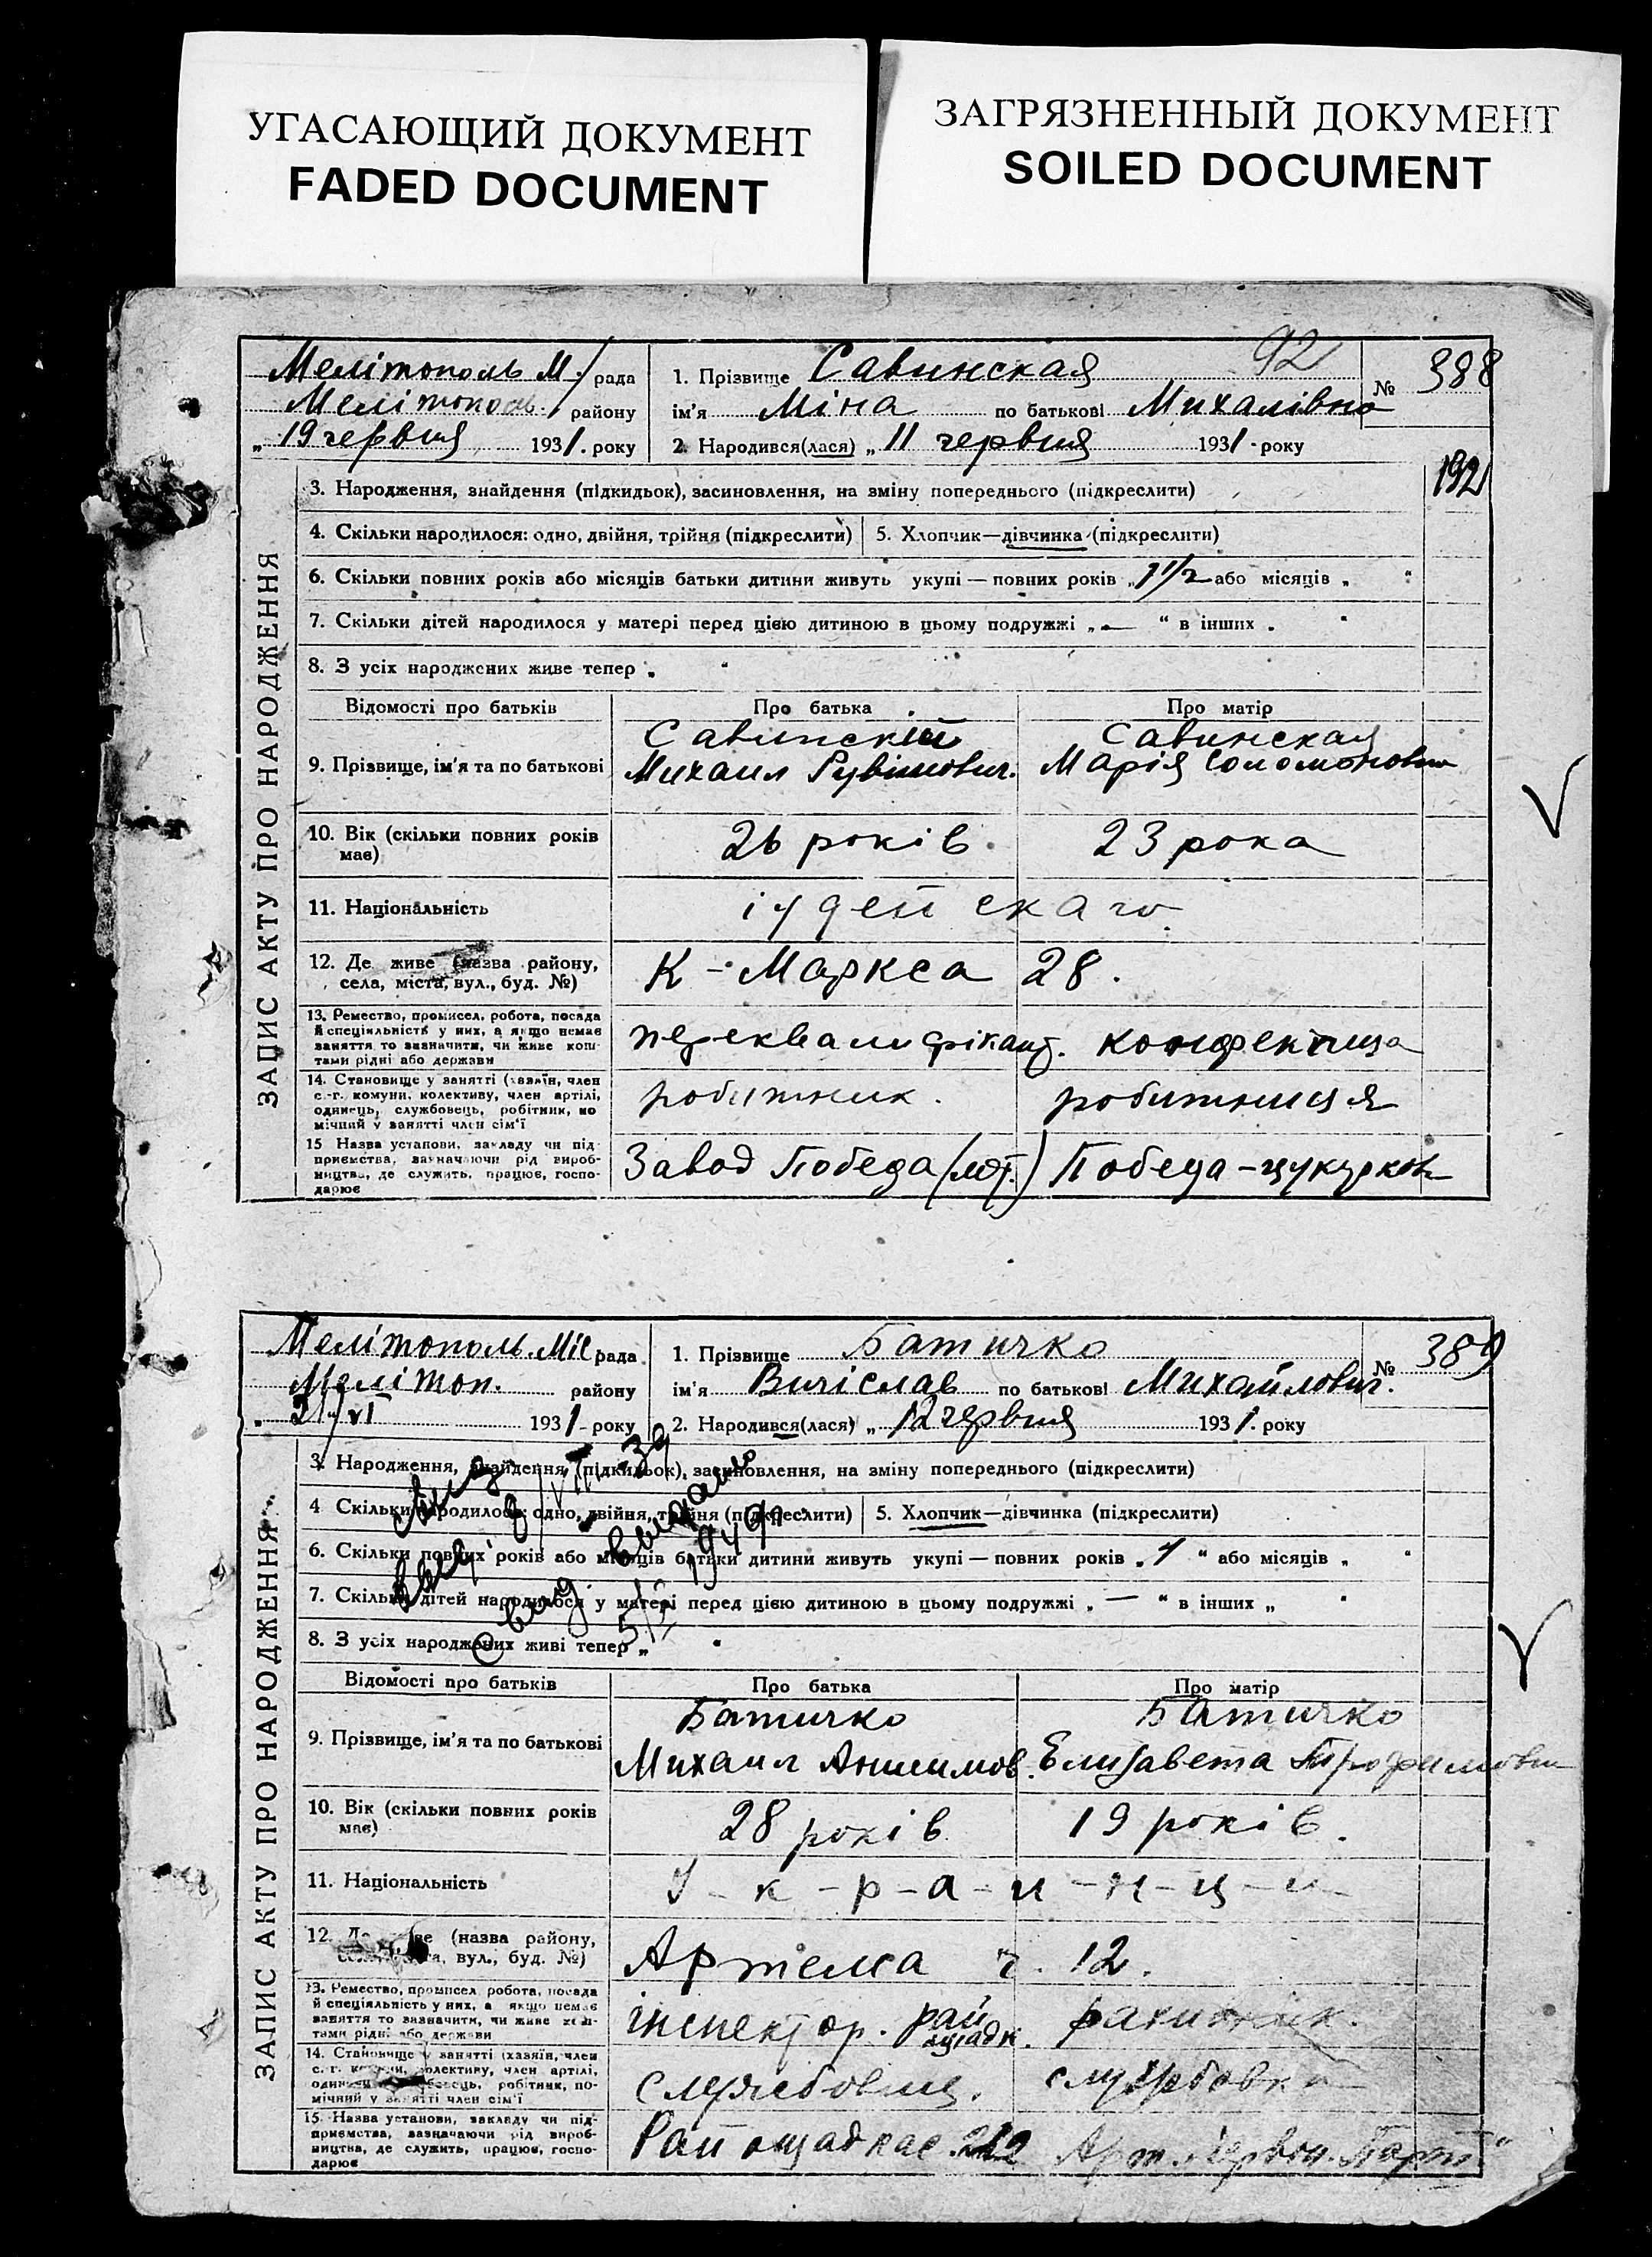 УГАСАЮЩИЙ ДОКУМЕНТ
FADED DOCUMENT
ЗАГРЯЗНЕННЫЙ ДОКУМЕНТ
SOILED DOCUMENT
92
Мелітополь М. рада
Мелітополь району
„19 червня 1931. року
1. Прізвище Савинская № 388
ім'я Міна по батькові Михалівна
2. Народився(лася) „11 червня 1931 - року
192
ЗАПИС АКТУ ПРО НАРОДЖЕННЯ
3. Народження, знайдення (підкидьок), засиновлення, на зміну попереднього (підкреслити)
4. Скільки народилося: одно, двійня, трійня (підкреслити) 5. Хлопчик—дівчинка (підкреслити)
6. Скільки повних років або місяців батьки дитини живуть укупі — повних років „1 1/2 або місяців „ “
7. Скільки дітей народилося у матері перед цією дитиною в цьому подружжі „— “ в інших „ “
8. З усіх народжених живе тепер „ “
Відомості про батьків Про батька Про матір
9. Прізвище, ім'я та по батькові
Савинский Савинская
Михаил Рувимович. Марія Соломоновна
10. Вік (скільки повних років має) 26 років. 23 рока
11. Національність іудейскаго
12. Де живе (назва району, села, міста, вул., буд. №) К - Маркса 28.
13. Ремество, промисел, робота, посада
й спеціяльність у них, а якщо немає
заняття то визначити, чи живе кош-
тами рідні або держави
14. Становище у занятті (хазяїн, член
с.-г. комуни, колективу, член артілі,
одинець, службовець, робітник, по
мічний у занятті член сім'ї
робитник. робитниця
15 Назва установи, закладу чи під-
приємства, вазначаючи рід вироб-
ництва, де служить, працює, госпо-
дарює
Завод Победа Победа -
Мелітополь. Міс рада
Мелітоп. району
21/VI 1931 - року
1. Прізвище Батичко № 389
ім'я Вичіслав по батькові Михайлович.
2. Народився(лася) „12 червня 1931. року
ЗАПИС АКТУ ПРО НАРОДЖЕННЯ
3. Народження, знайдення (підкидьок), засиновлення, на зміну попереднього (підкреслити)
4 Скільки народилося: одно, двійня, трійня (підкреслити) 5. Хлопчик—дівчинка (підкреслити)
6. Скільки повних років або місяців батьки дитини живуть укупі — повних років „1 “ або місяців „ “
7. Скільки дітей народилося у матері перед цією дитиною в цьому подружжі „ — “ в інших „ “
8. З усіх народжених живі тепер „ “
Відомості про батьків Про батька Про матір
9. Прізвище, ім'я та по батькові
Батичко Батичко
Михаил Анисимов. Елизавета Трофимовна
10. Вік (скільки повних років має) 28 років 19 років.
11. Національність У - к - р - а - и - н - ц - и
12. (назва району, вул., буд. №) Артема 12.
13. Ремество, промисел робота, посада
й спеціяльність у них, а якщо немає
заняття то визначити, чи живе кош-
тами рідні або держави
інспектор. рай ощадк.
14. Становище у занятті (хазяїн, член
с.-г. комуни, колективу, член артілі,
робітник, по-
мічний у занятті член сім'ї
Службовец. службовка
15. Назва установи, закладу чи під-
приємства, вазначаючи рід вироб-
ництва, де служить, працює, госпо-
дарює
Рай ощадкас.